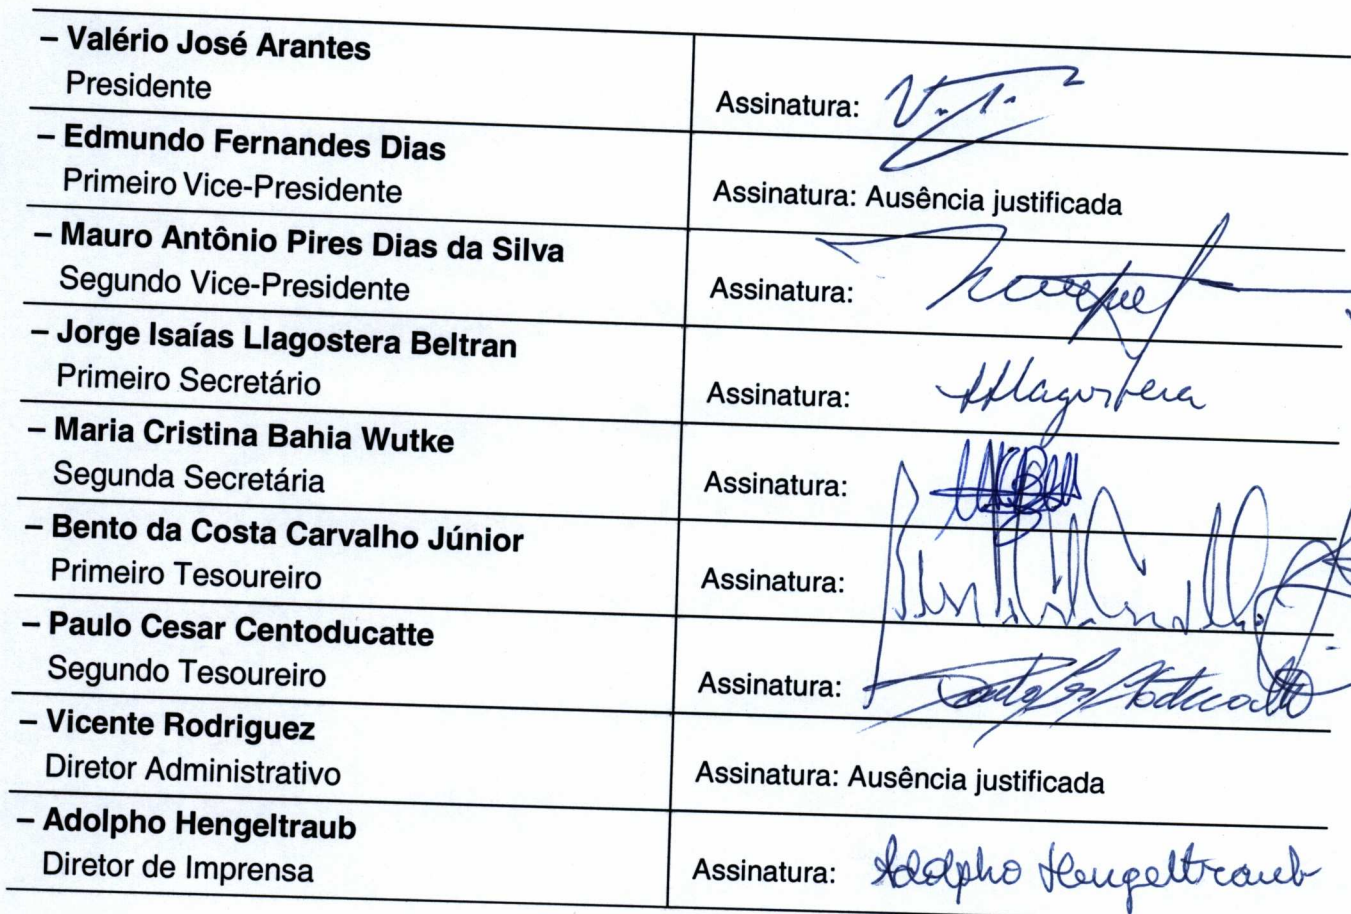 – Valério José Arantes
Presidente
Assinatura:
– Edmundo Fernandes Dias
Primeiro Vice-Presidente
Assinatura: Ausência justificada
– Mauro Antônio Pires Dias da Silva
Segundo Vice-Presidente
Assinatura:
– Jorge Isaías Llagostera Beltran
Primeiro Secretário
Assinatura: Llagostera
– Maria Cristina Bahia Wutke
Segunda Secretária
Assinatura:
– Bento da Costa Carvalho Júnior
Primeiro Tesoureiro
Assinatura:
– Paulo Cesar Centoducatte
Segundo Tesoureiro
Assinatura:
– Vicente Rodriguez
Diretor Administrativo
Assinatura: Ausência justificada
– Adolpho Hengeltraub
Diretor de Imprensa
Assinatura: Adolpho Hengeltraub